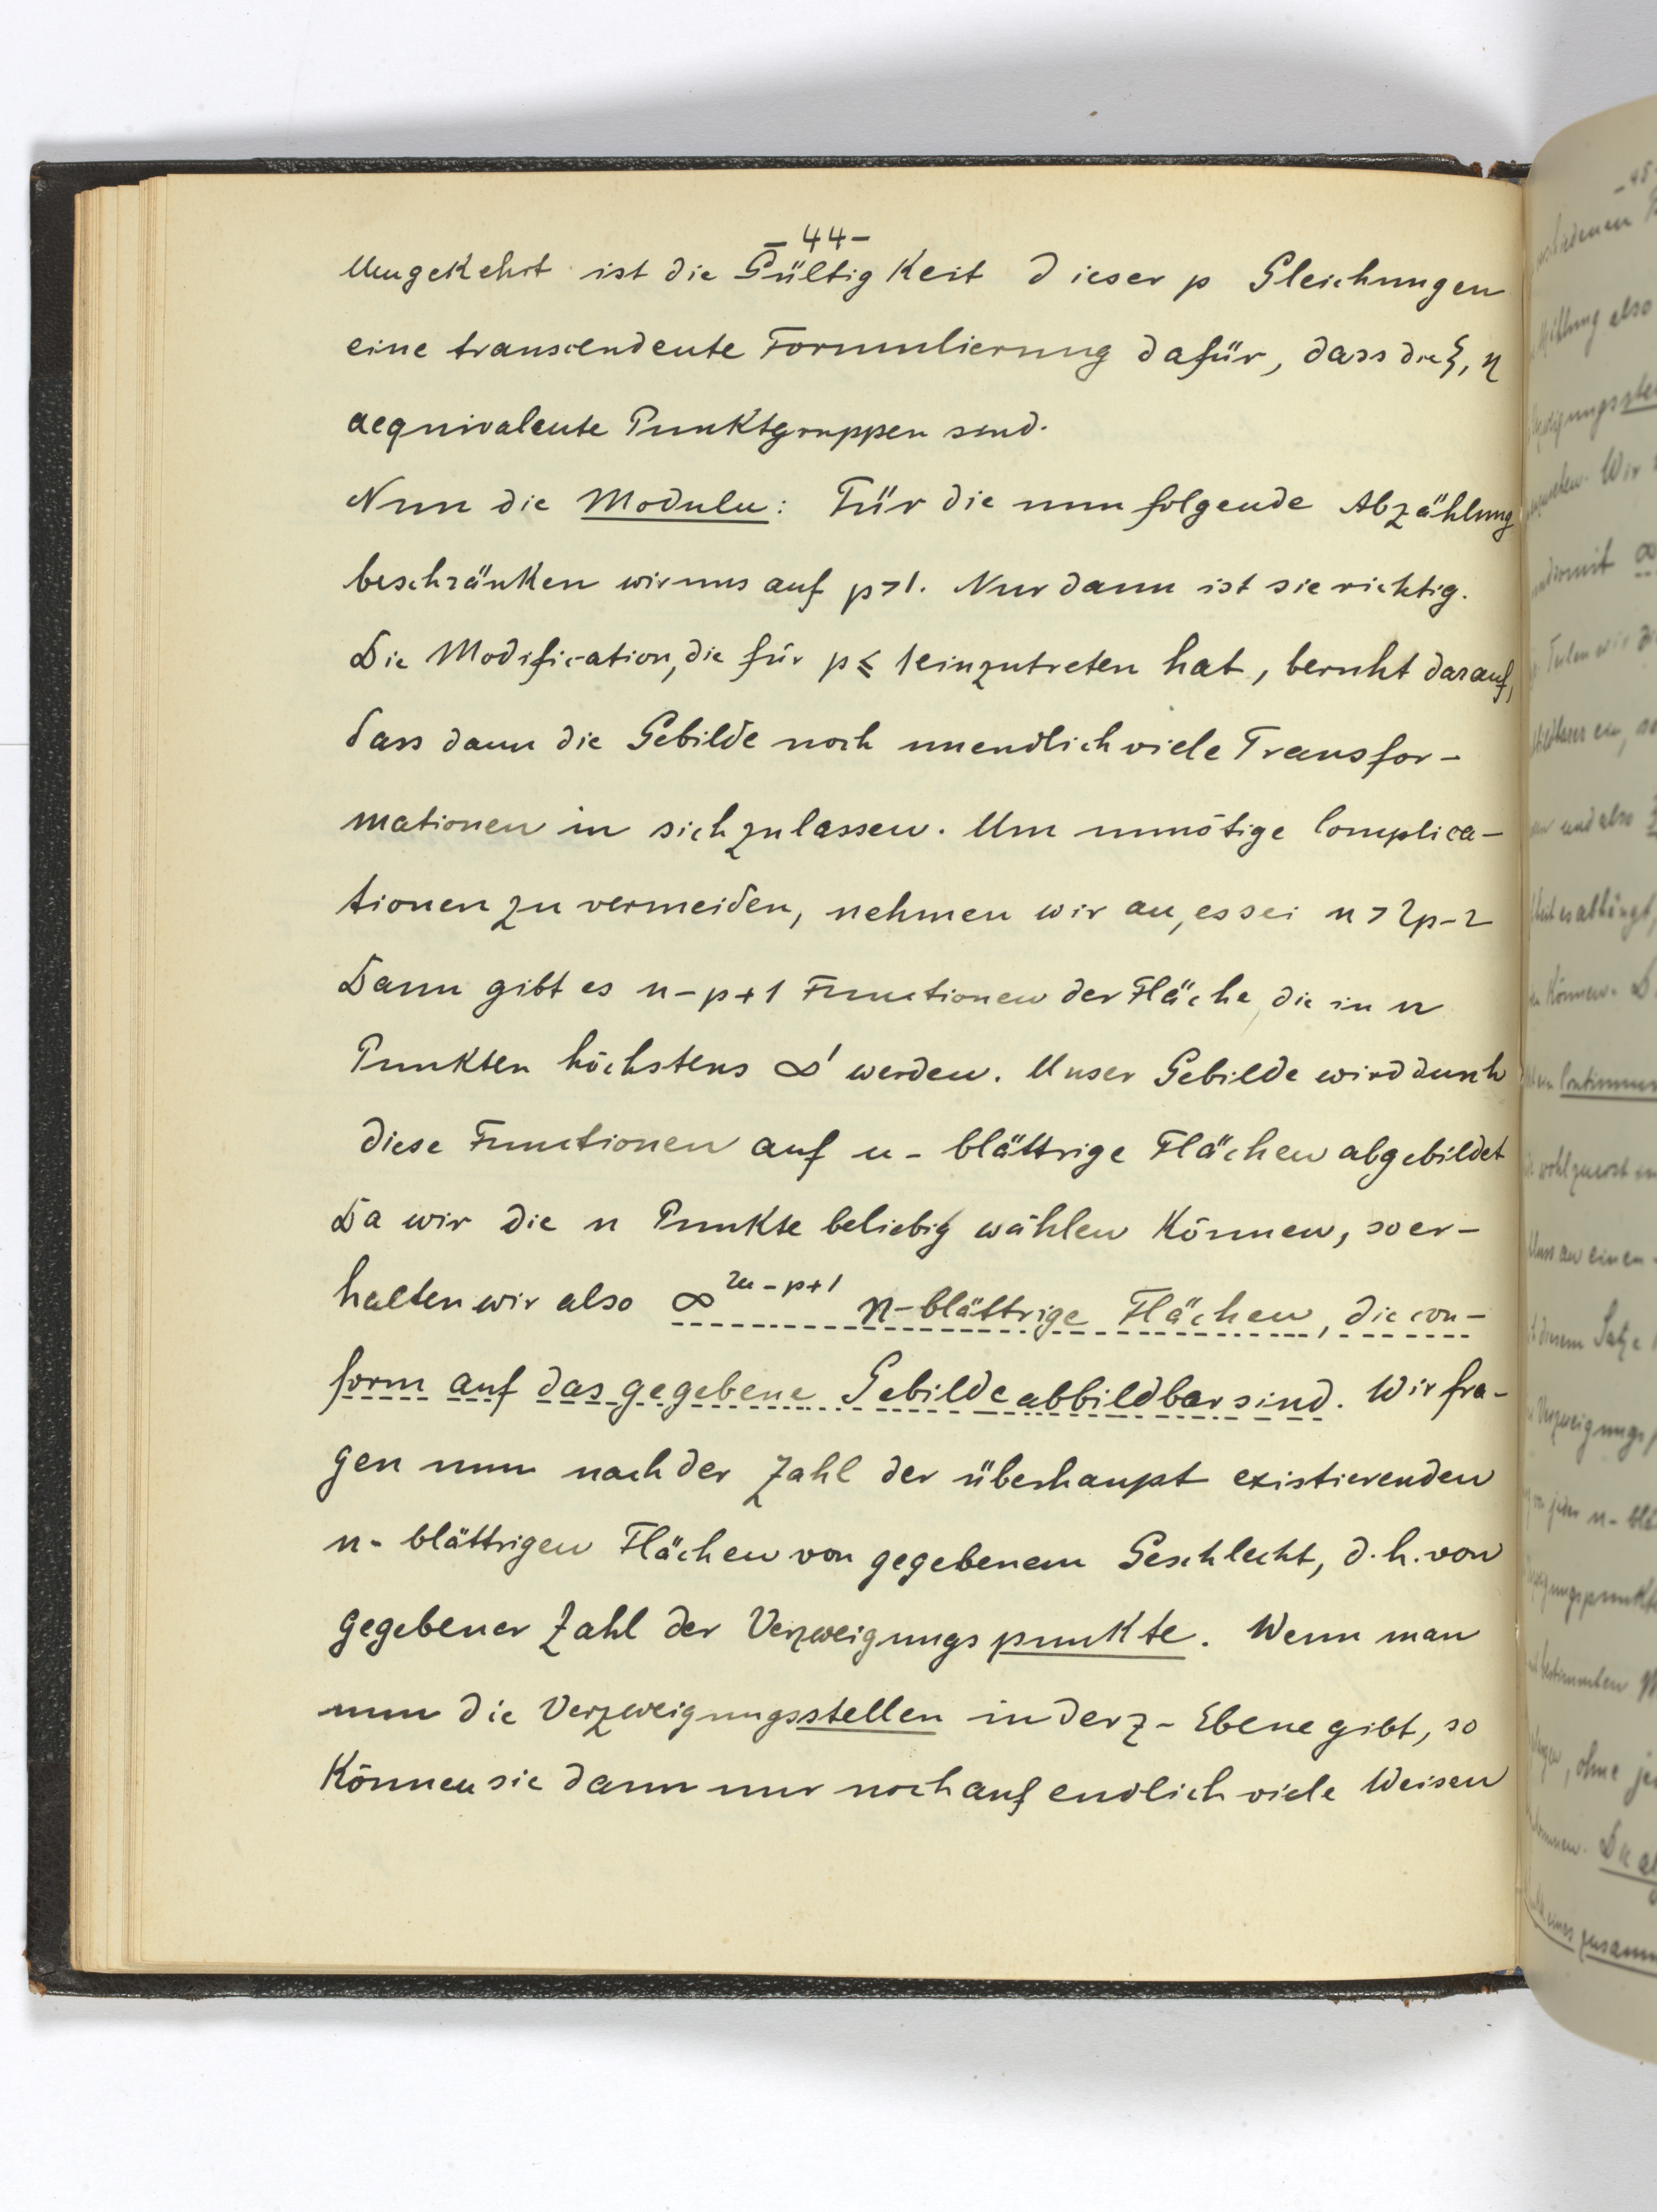 - 44 -
Umgekehrt ist die Gültigkeit dieser p Gleichungen
eine transcendente Formulierung dafür, dass die ξ, η
aequivalente Punktgruppen sind.
Nun die Moduln: Für die nun folgende Abzählung
beschränken wir uns auf p > 1. Nur dann ist sie richtig.
Die Modification, die für p ≤ 1 einzutreten hat, beruht darauf,
dass dann die Gebilde noch unendlich viele Transfor-
mationen in sich zulassen. Um unnötige Complica-
tionen zu vermeiden, nehmen wir an, es sei n > 2p-2
Dann gibt es n-p+1 Functionen der Fläche, die in n
Punkten höchstens ∞¹ werden. Unser Gebilde wird durch
diese Functionen auf n-blättrige Flächen abgebildet
Da wir die n Punkte beliebig wählen können, so er-
halten wir also ∞^{2n-p+1} n-blättrige Flächen, die con-
form auf das gegebene Gebilde abbildbar sind. Wir fra-
gen nun nach der Zahl der überhaupt existierenden
n-blättrigen Flächen von gegebenem Geschlecht, d.h. von
gegebener Zahl der Verzweigungspunkte. Wenn man
nun die Verzweigungsstellen in der z-Ebene gibt, so
können sie dann nur noch auf endlich viele Weisen